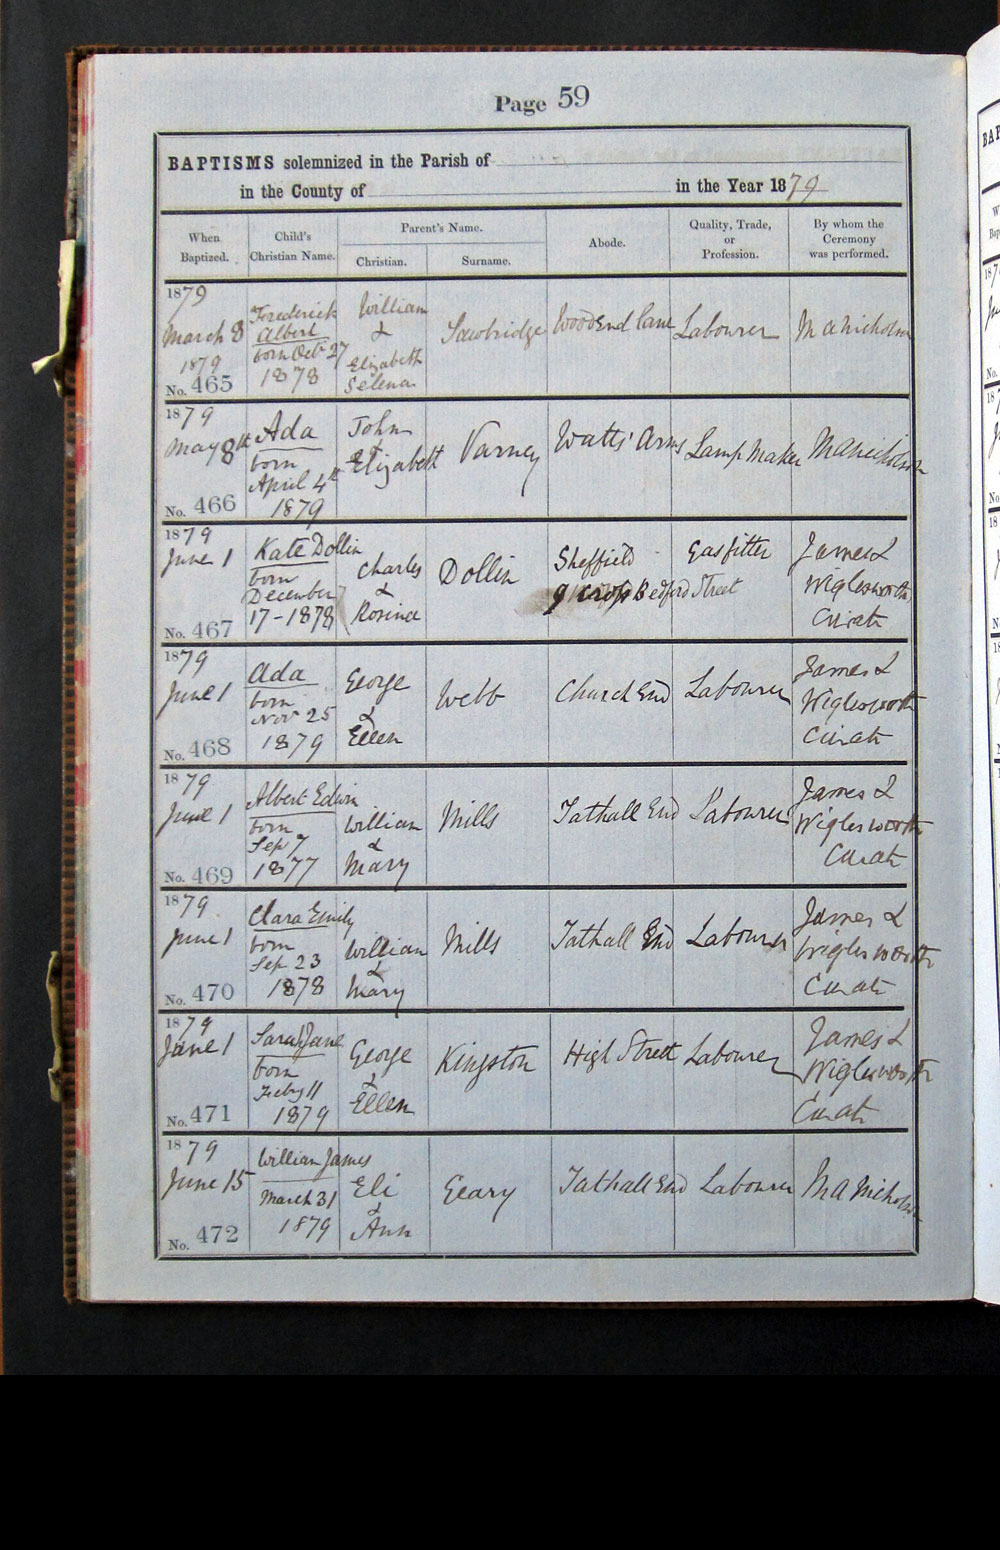 Page 59
BAPTISMS solemnized in the Parish of
in the County of in the Year 1879
When Baptized. Child's Christian Name. Parent's Name. Christian. Surname. Abode. Quality, Trade, or Profession. By whom the Ceremony was performed.
1879
March 8
1879
No. 465
Frederick
Albert
born Oct 27
1878
William
&
Elizabeth
Selena
Sawbridge
Woodend lane
Labourer
M A Nicholson
1879
May 8th
No. 466
Ada
born
April 4th
1879
John
&
Elizabeth
Varney
Watts' Arms
Lamp Maker
M A Nicholson
1879
June 1
No. 467
Kate Dollin
born
December
17 - 1878
Charles
&
Rosina
Dollin
Sheffield
9 Bedford Street
Gasfitter
James L
Wiglesworth
Curate
1879
June 1
No. 468
Ada
born
Nov 25
1879
George
&
Ellen
Webb
Church End
Labourer
James L
Wiglesworth
Curate
1879
June 1
No. 469
Albert Edwin
born
Sep 7
1877
William
&
Mary
Mills
Tathall End
Labourer
James L
Wiglesworth
Curate
1879
June 1
No. 470
Clara Emily
born
Sep 23
1878
William
&
Mary
Mills
Tathall End
Labourer
James L
Wiglesworth
Curate
1879
June 1
No. 471
Sarah Jane
born
Feby 11
1879
George
&
Ellen
Kingston
High Street
Labourer
James L
Wiglesworth
Curate
1879
June 15
No. 472
William James
March 31
1879
Eli
&
Ann
Geary
Tathall End
Labourer
M A Nicholson